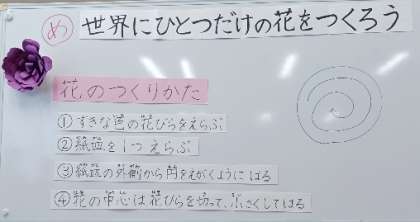 め 世界にひとつだけの花をつくろう
花のつくりかた
①すきな色の花びらをえらぶ
②紙皿を1つえらぶ
③紙皿の外側から円をえがくようにはる
④花の中芯は花びらを切って、小さくしてはる